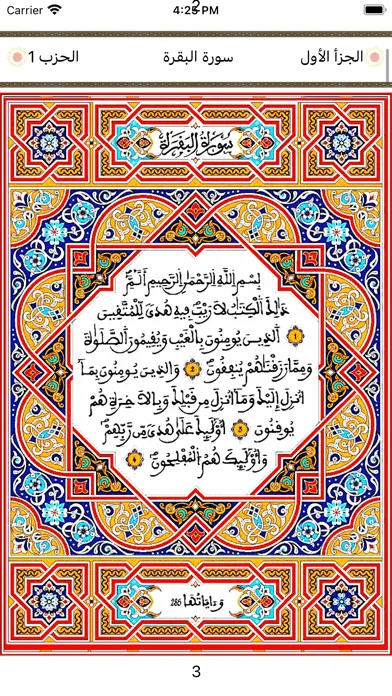 Carrier 4:25 PM
2
الجزأ الأول سورة البقرة الحزب 1
سُورَةُ الْبَقَرَةِ
بِسْمِ اِ۬للَّهِ اِ۬لرَّحْمَٰنِ اِ۬لرَّحِيمِ أَلَٓمِّٓ
ذَٰلِكَ اَ۬لْكِتَٰبُ لَا رَيْبَۖ فِيهِ هُديٗ لِّلْمُتَّقِينَ
1 اَ۬لذِينَ يُومِنُونَ بِالْغَيْبِ وَيُقِيمُونَ اَ۬لصَّلَوٰةَ
وَمِمَّا رَزَقْنَٰهُمْ يُنفِقُونَ 2 وَالذِينَ يُومِنُونَ بِمَآ
أُنزِلَ إِلَيْكَ وَمَآ أُنزِلَ مِن قَبْلِكَ وَبِالَاخِرَةِ هُمْ
يُوقِنُونَ 3 أُوْلَٰٓئِكَ عَلَيٰ هُديٗ مِّن رَّبِّهِمْ
وَأُوْلَٰٓئِكَ هُمُ اُ۬لْمُفْلِحُونَ 4
وَءَايَاتُهَا 286
3